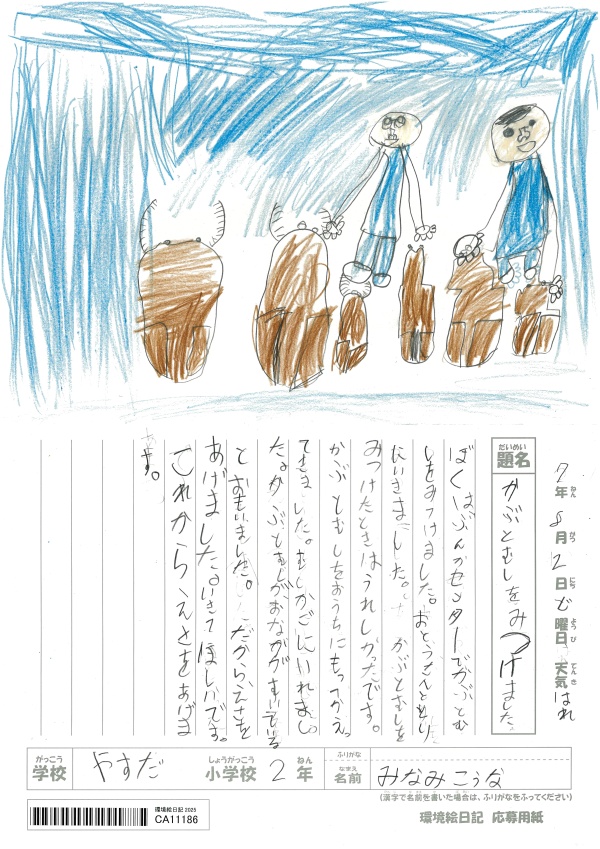 7年ねん8月がつ2日にちど曜日ようび天気てんきはれ
題名だいめい かぶとむしをみつけました。
ぼくはぶんかセンターでかぶとむ
しをみつけました。おとうさんととり
にいきました。かぶとむしを
みつけたときはうれしかったです。
かぶとむしをおうちにもってかえっ
てきました。むしかごにいれまし
た。かぶとむしがおなかがすいている
とおもいました。だからえさを
あげました。いきてほしいです。
これからもえさをあげま
す。
がっこう 学校 やすだ しょうがっこう 小学校 2 ねん 年 ふりがな なまえ 名前 みなみこうな
(漢字で名前を書いた場合は、ふりがなをふってください)
環境絵日記 2025
CA11186
環境絵日記 応募用紙